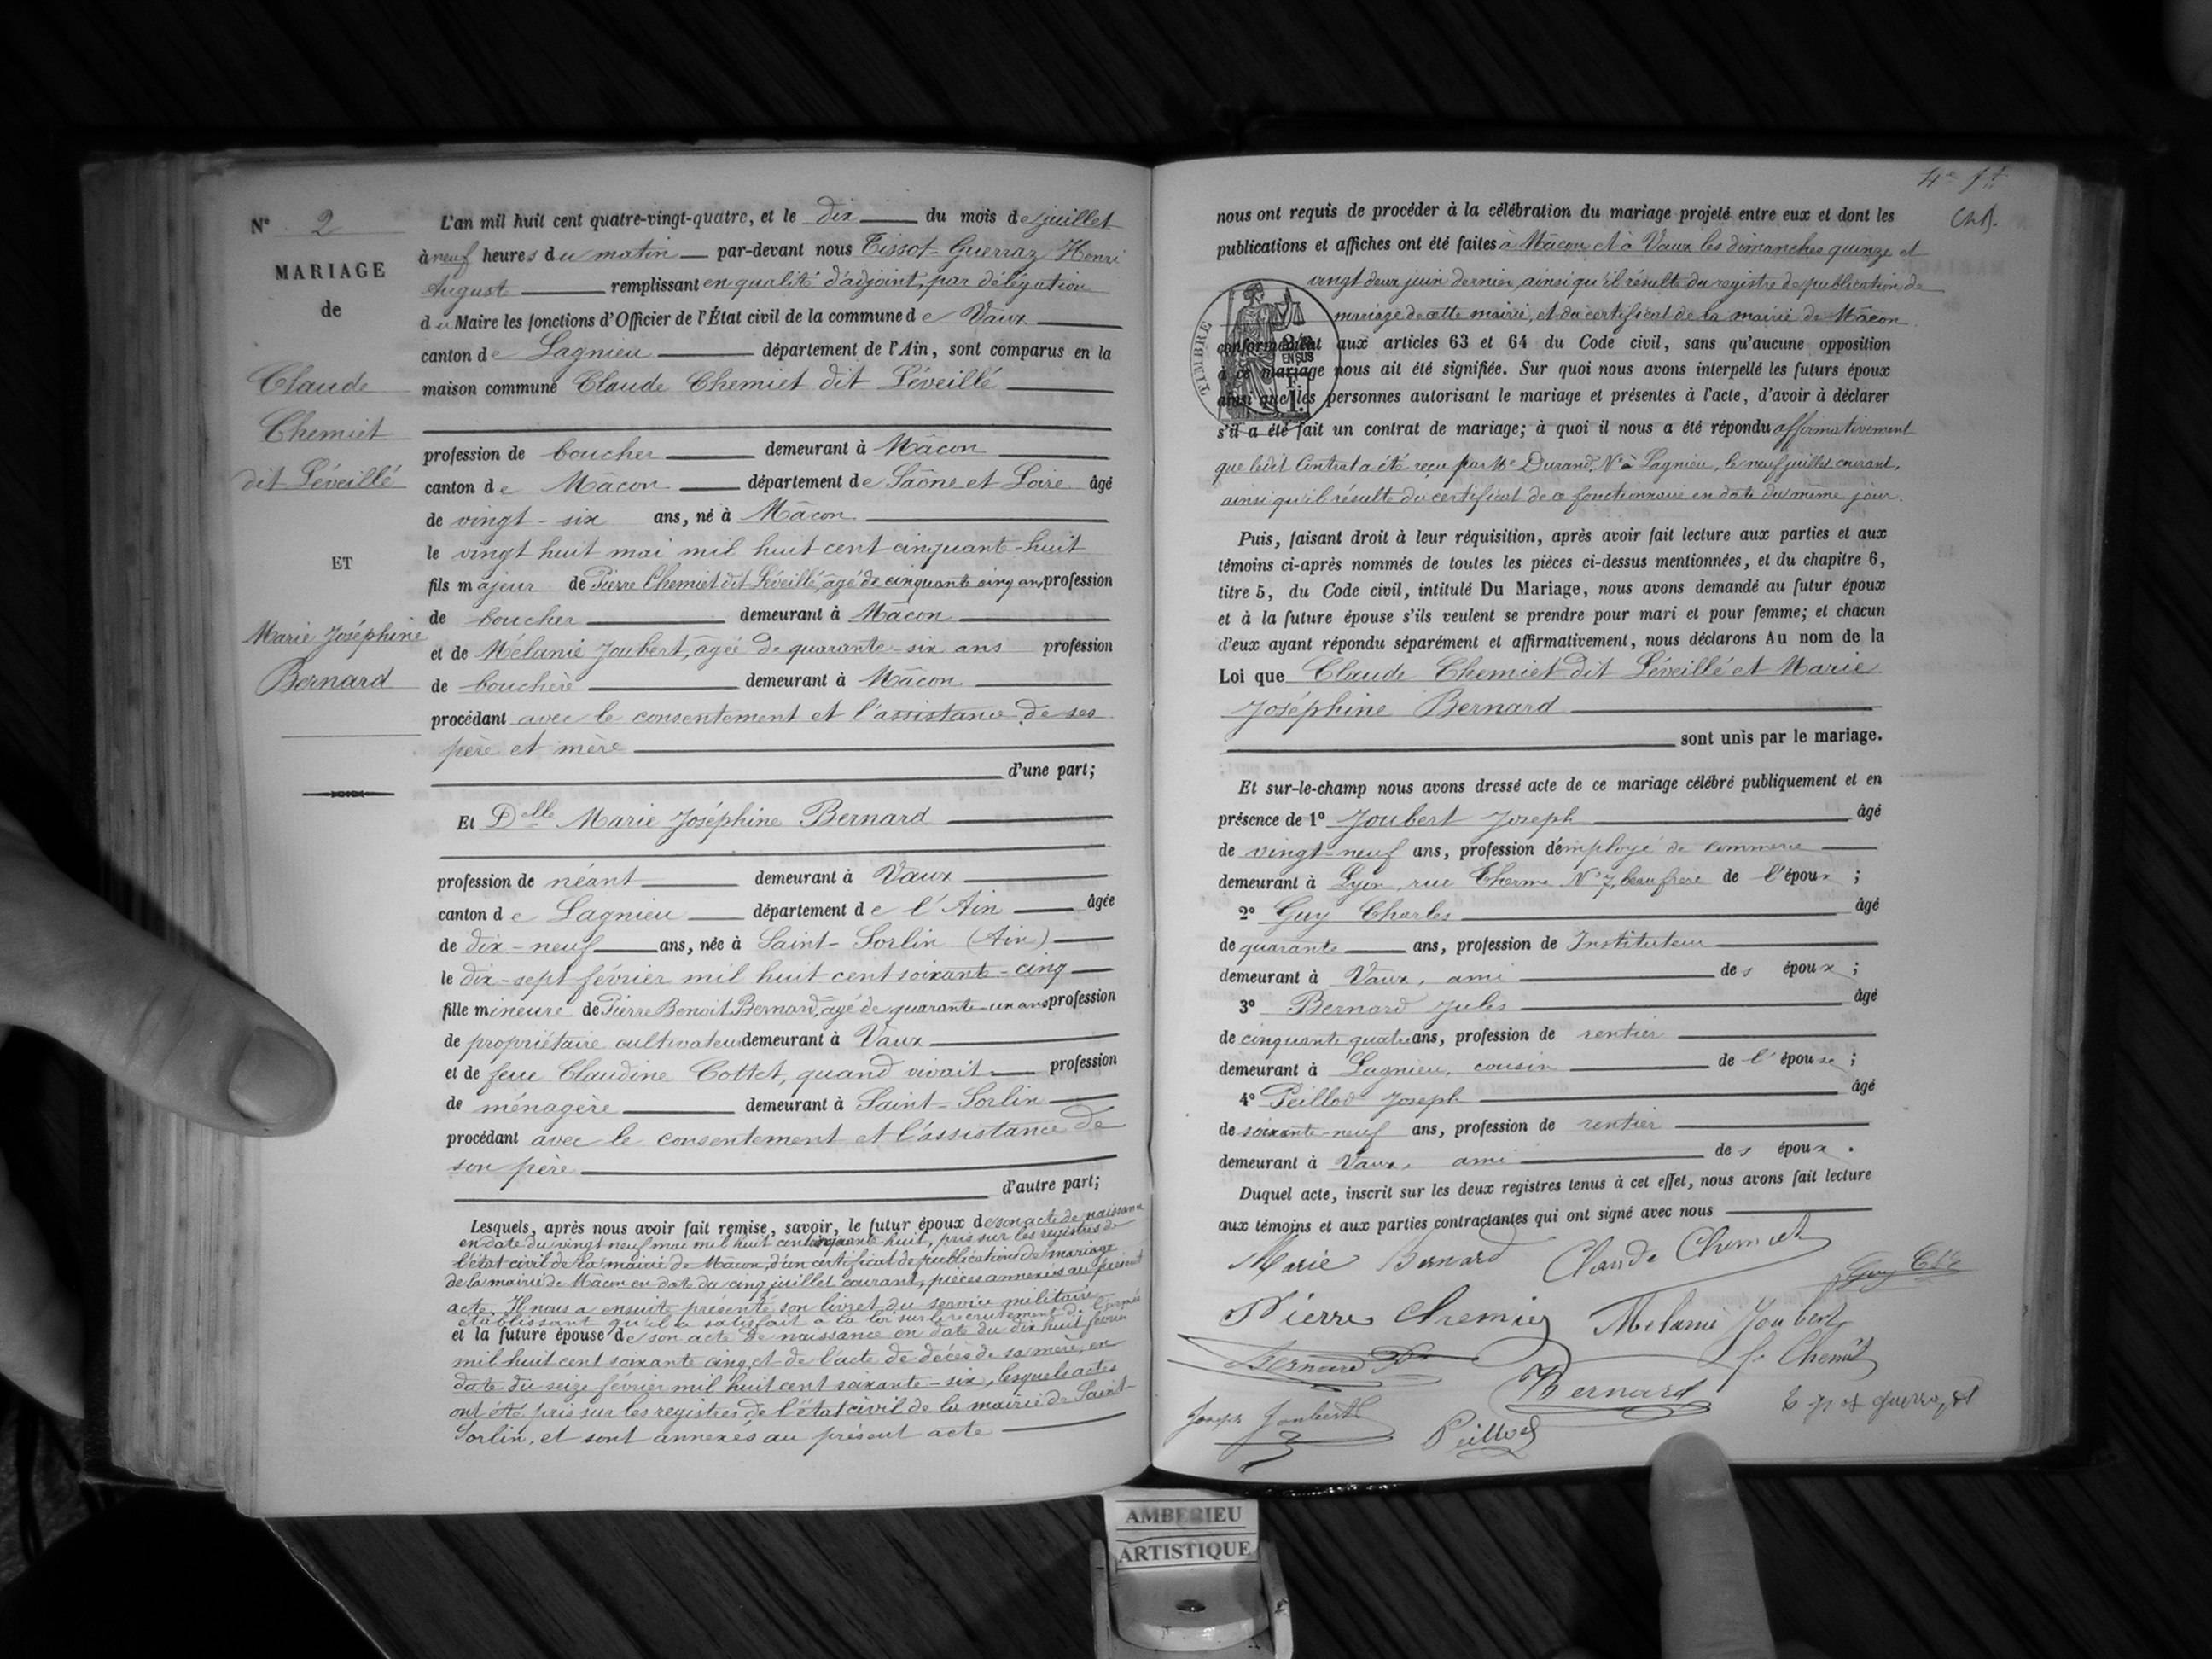 N° 2
MARIAGE
de
Claude
Chemiet
dit Léveillé
ET
Marie Joséphine
Bernard
L'an mil huit cent quatre-vingt-quatre, et le dix du mois de juillet
à neuf heures du matin par-devant nous Tissot-Guerraz Henri
August remplissant en qualité d'adjoint, par délégation
du Maire les fonctions d'Officier de l'État civil de la commune de Vaux
canton de Lagnieu département de l'Ain, sont comparus en la
maison commune Claude Chemiet dit Léveillé
profession de boucher demeurant à Mâcon
canton de Mâcon département de Saône et Loire âgé
de vingt-six ans, né à Mâcon
le vingt huit mai mil huit cent cinquante-huit
fils majeur de Pierre Chemiet dit Léveillé, âgé de cinquante cinq ans, profession
de boucher demeurant à Mâcon
et de Mélanie Joubert, agée de quarante-six ans profession
de bouchère demeurant à Mâcon
procédant avec le consentement et l'assistance de ses
père et mère
d'une part;
Et Delle Marie Joséphine Bernard
profession de néant demeurant à Vaux
canton de Lagnieu département de l'Ain âgée
de dix-neuf ans, née à Saint-Sorlin (Ain)
le dix-sept février mil huit cent soixante-cinq
fille mineure de Pierre Benoit Bernard, âgé de quarante-un ans profession
de propriétaire cultivateur demeurant à Vaux
et de feue Claudine Cottet, quand vivait profession
de ménagère demeurant à Saint-Sorlin
procédant avec le consentement et l'assistance de
son père
d'autre part;
Lesquels, après nous avoir fait remise, savoir, le futur époux de son acte de naissance
en date du vingt neuf mai mil huit cent cinquante huit, pris sur les registres de
l'état civil de la mairie de Mâcon, d'un certificat de publications de mariage
de la mairie de Mâcon en date du cinq juillet courant, pièces annexées au présent
acte. Il nous a ensuite présenté son livret du service militaire
établissant qu'il a satisfait à la loi sur le recrutement de l'armée
et la future épouse de son acte de naissance en date du dix huit février
mil huit cent soixante cinq, et de l'acte de décès de sa mère, en
date du seize février mil huit cent soixante-six, lesquels actes
ont été pris sur les registres de l'état civil de la mairie de Saint-
Sorlin, et sont annexés au présent acte
nous ont requis de procéder à la célébration du mariage projeté entre eux et dont les
publications et affiches ont été faites à Mâcon et à Vaux les dimanches quinze et
vingt deux juin dernier, ainsi qu'il résulte du registre de publication de
mariage de cette mairie, et du certificat de la mairie de Mâcon
TIMBRE
2/10 EN SUS
conformément aux articles 63 et 64 du Code civil, sans qu'aucune opposition
à ce mariage nous ait été signifiée. Sur quoi nous avons interpellé les futurs époux
ainsi que les personnes autorisant le mariage et présentes à l'acte, d'avoir à déclarer
s'il a été fait un contrat de mariage; à quoi il nous a été répondu affirmativement
que ledit Contrat a été reçu par Me Durand, Nre à Lagnieu, le neuf juillet courant,
ainsi qu'il résulte du certificat de ce fonctionnaire en date du même jour.
Puis, faisant droit à leur réquisition, après avoir fait lecture aux parties et aux
témoins ci-après nommés de toutes les pièces ci-dessus mentionnées, et du chapitre 6,
titre 5, du Code civil, intitulé Du Mariage, nous avons demandé au futur époux
et à la future épouse s'ils veulent se prendre pour mari et pour femme; et chacun
d'eux ayant répondu séparément et affirmativement, nous déclarons Au nom de la
Loi que Claude Chemiet dit Léveillé et Marie
Joséphine Bernard
sont unis par le mariage.
Et sur-le-champ nous avons dressé acte de ce mariage célébré publiquement et en
présence de 1° Joubert Joseph âgé
de vingt-neuf ans, profession d'employé de commerce
demeurant à Lyon, rue Therme N° 7, beau frère de l'époux ;
2° Guy Charles âgé
de quarante ans, profession de Instituteur
demeurant à Vaux, ami des époux ;
3° Bernard Jules âgé
de cinquante quatre ans, profession de rentier
demeurant à Lagnieu, cousin de l'épouse ;
4° Peillod Joseph âgé
de soixante-neuf ans, profession de rentier
demeurant à Vaux, ami des époux.
Duquel acte, inscrit sur les deux registres tenus à cet effet, nous avons fait lecture
aux témoins et aux parties contractantes qui ont signé avec nous
Marie Bernard Claude Chemiet
Guy Ch
Pierre Chemiet Melanie Joubert
Bernard
Bernard
Joseph Joubert
Peillod
AMBERIEU
ARTISTIQUE